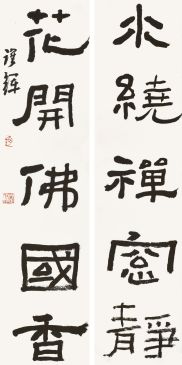 水繞禪窗靜
花開佛國香